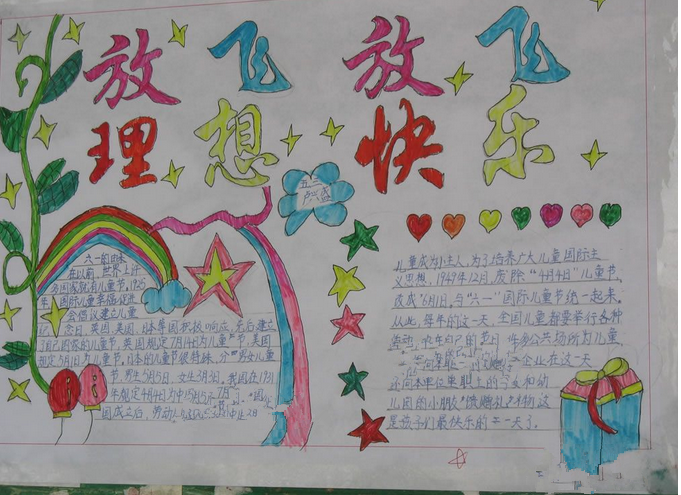 放飞 放飞
理想 快乐
五二
卢兴盛
六一的由来
在以前，世界上许
多国家就有儿童节，1925
年，国际儿童幸福促进
会倡议建立儿童
纪念日，英国，美国，日本等国积极响应，先后建立
了自己国家的儿童节，英国规定7月14为儿童节，美国
规定5月1为儿童节，日本的儿童节很特殊，分男女儿童
节，男生5月5日，女生3月3日。我国在1931
年规定4月4为中
国成立后，劳动人
儿童成为小主人，为了培养广大儿童国际主
义思想，1949年12月，废除“4月4日”儿童节，
改成6月1日，与“六一”国际儿童节统一起来。
从此，每年的这一天，全国儿童都要举行各种
活动，庆祝自己的节日，许多公共场所为儿童
企业在这一天
还向本单位里职工的子女和幼
儿园的小朋友馈赠礼物，这
是孩子们最快乐的一天了。